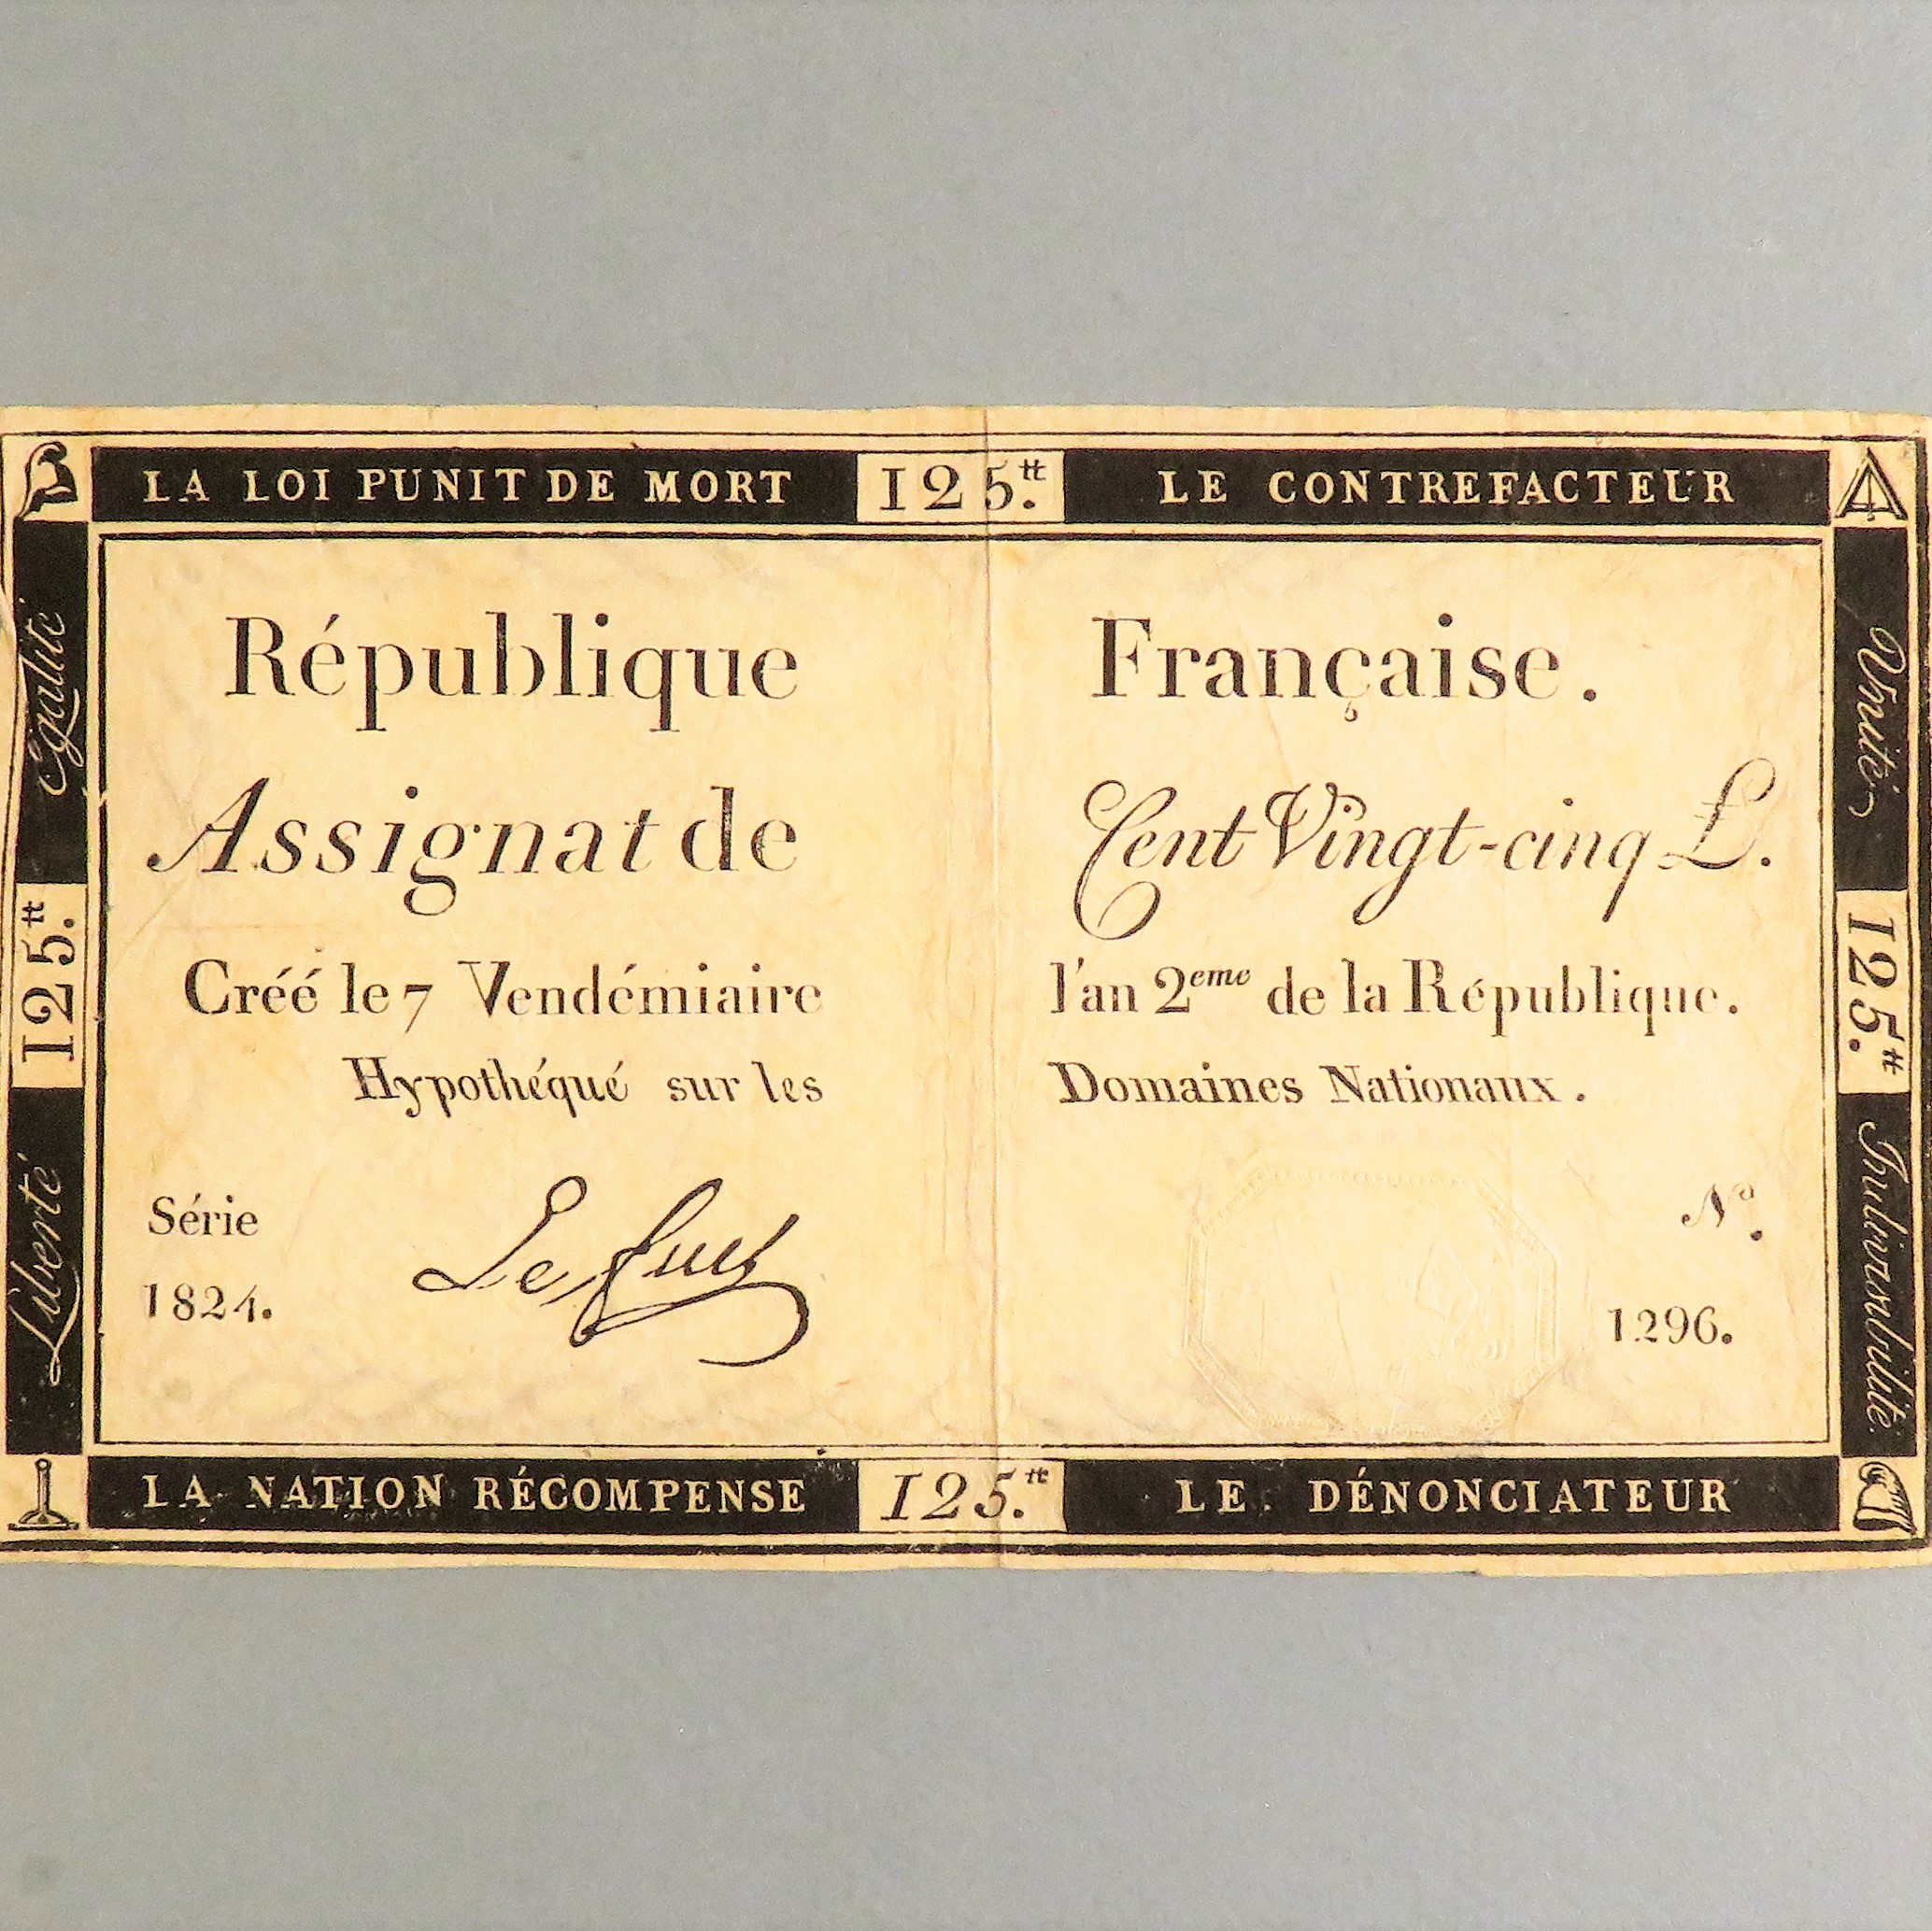 LA LOI PUNIT DE MORT 125.tt LE CONTREFACTEUR
Egalité
125.tt
Liberté
République Française.
Assignat de Cent Vingt-cinq L.
Créé le 7 Vendémiaire l'an 2eme de la République.
Hypothéqué sur les Domaines Nationaux.
Série
1824.
Nº.
1296.
Unité,
125.tt
Indivisibilité.
LA NATION RÉCOMPENSE 125.tt LE DÉNONCIATEUR